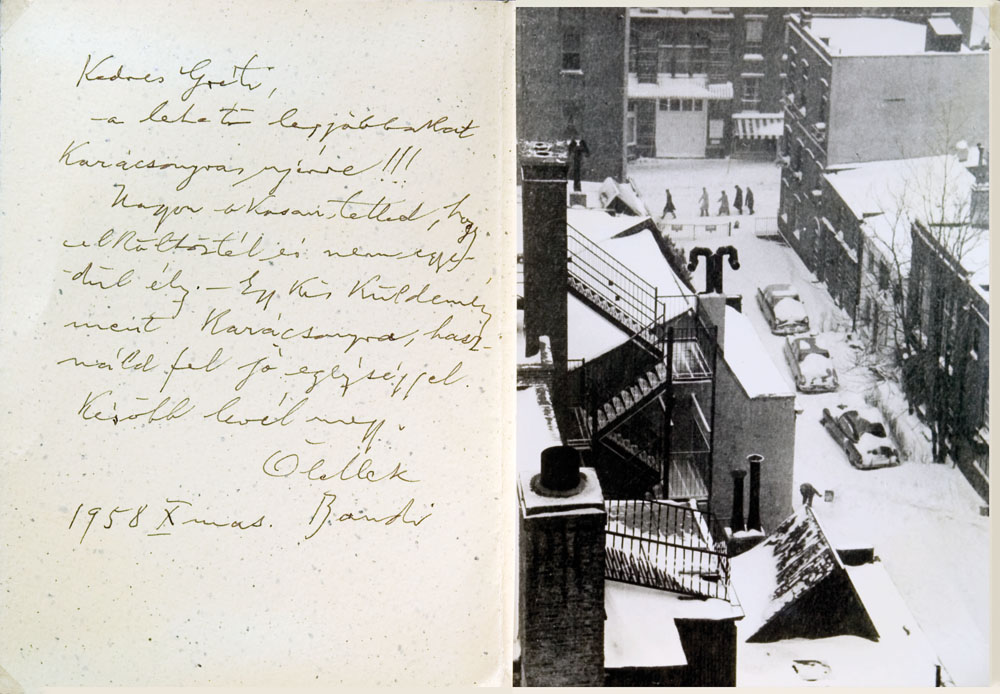 Kedves Gréti,
- a lehető legjobbakat
Karácsonyra s ujévre!!!
Nagyon okosan tetted, hogy
elköltöztél és nem egye-
dül élsz. - Egy kis küldemény
ment Karácsonyra, hasz-
náld fel jó egészséggel.
Később levél megy.
Ölellek
1958 Xmas. Bandi